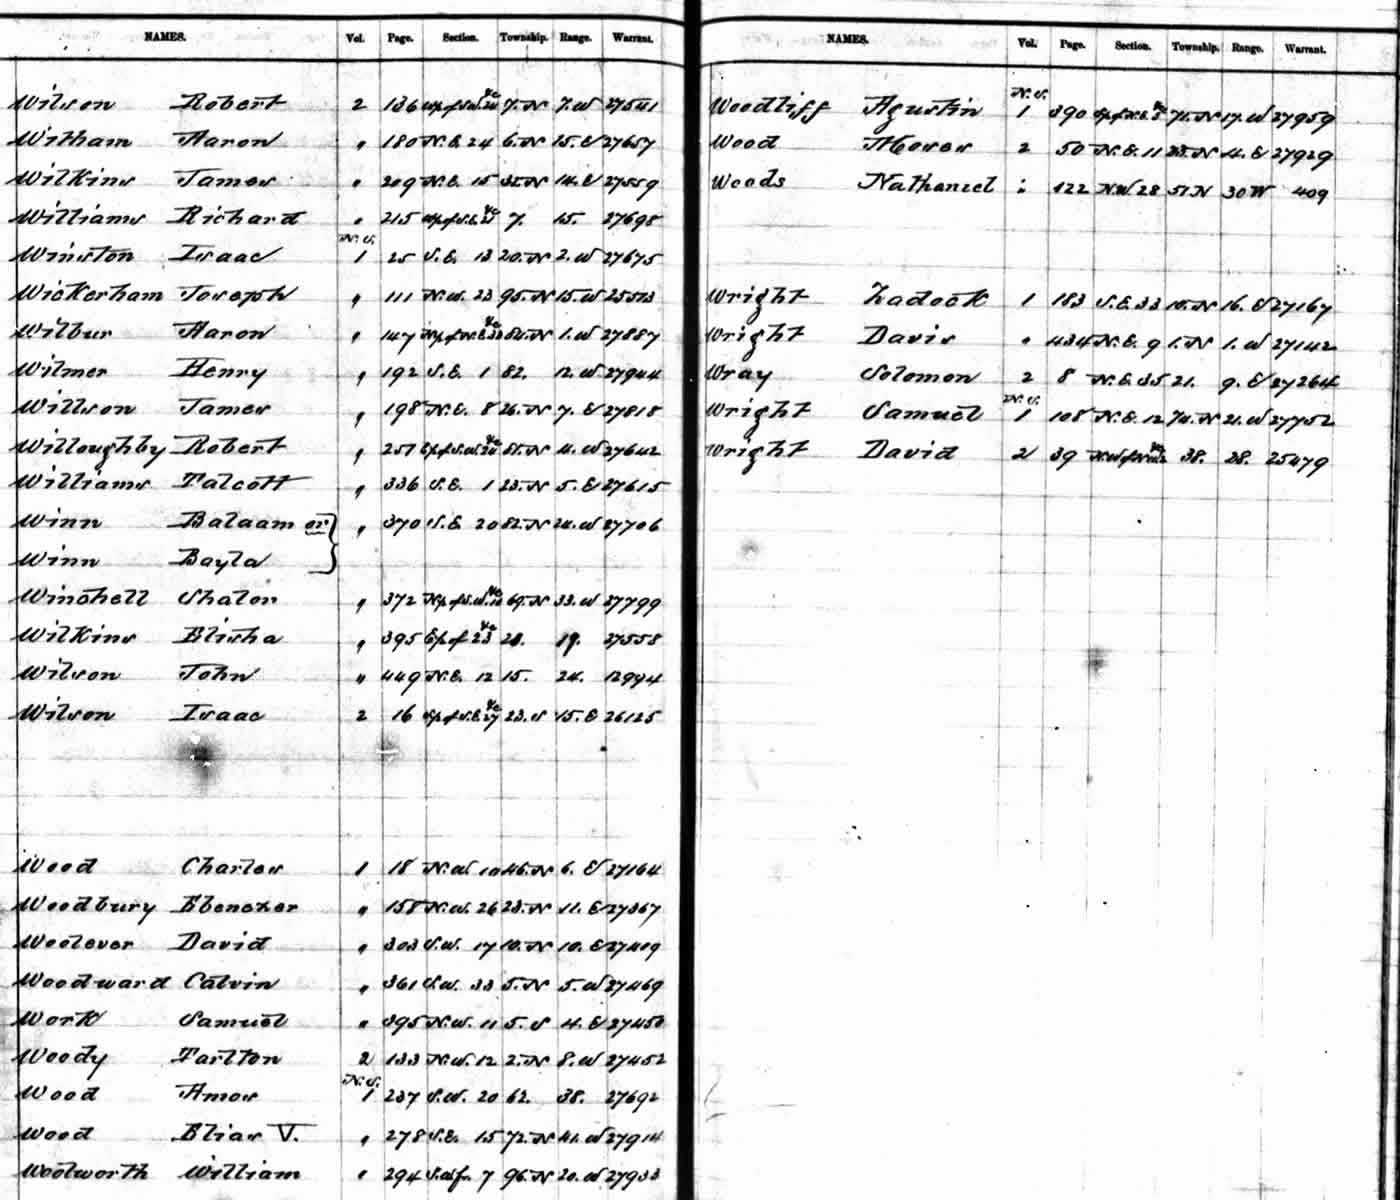 NAMES. Vol. Page. Section. Township. Range. Warrant.
Wilson Robert 2 136 7. N 7. W 27541
Witham Aaron " 180 N.E. 24 6. N 15. E 27657
Wilkins James " 209 N.E. 15 35. N 14. E 27559
Williams Richard " 215 7. 15. 27698
N.S.
Winston Isaac 1 25 S.E. 13 20. N 2. W 27675
Wickerham Joseph " 111 N.W. 23 95. N 15. W 25513
Wilbur Aaron " 147 84. N 1. W 27887
Wilmer Henry " 192 S.E. 1 82. 12. W 27944
Willson James " 198 N.E. 8 26. N 7. E 27818
Willoughby Robert " 257 81. N 4. W 27642
Williams Talcott " 336 S.E. 1 23. N 5. E 27615
Winn Balaam or " 370 S.E. 20 82. N 24. W 27706
Winn Bayla
Winchell Shalor " 372 69. N 33. W 27799
Wilkins Elisha " 395 23 21. 19. 27558
Wilson John " 449 N.E. 12 15. 24. 12994
Wilson Isaac 2 16 23. S 15. E 26125
Wood Charles 1 18 N.W. 10 46. N 6. E 27164
Woodbury Ebenezer " 158 N.W. 26 23. N 11. E 27367
Woolever David " 303 S.W. 17 10. N 10. E 27409
Woodward Calvin " 361 S.W. 33 5. N 5. W 27469
Work Samuel " 395 N.W. 11 5. S 4. E 27450
Woody Tarlton 2 133 N.W. 12 2. N 8. W 27452
N.S.
Wood Amos 1 237 S.W. 20 62. 38. 27692
Wood Elias V. " 278 S.E. 15 72. N 41. W 27914
Woolworth William " 294 S.W. fr. 7 96. N 20. W 27933
NAMES. Vol. Page. Section. Township. Range. Warrant.
N.S.
Woodliff Agustin 1 390 71. N 17. W 27959
Wood Moses 2 50 N.E. 11 25. N 4. E 27929
Woods Nathaniel " 122 N.W 28 51 N 30 W 409
Wright Zadock 1 183 S.E. 33 10. N 16. E 27167
Wright Davis " 434 N.E. 9 1. N 1. W 27142
Wray Solomon 2 8 N.E. 35 21. 9. E 27264
N.S.
Wright Samuel 1 108 N.E. 12 74. N 21. W 27752
Wright David 2 39 38. 28. 25479